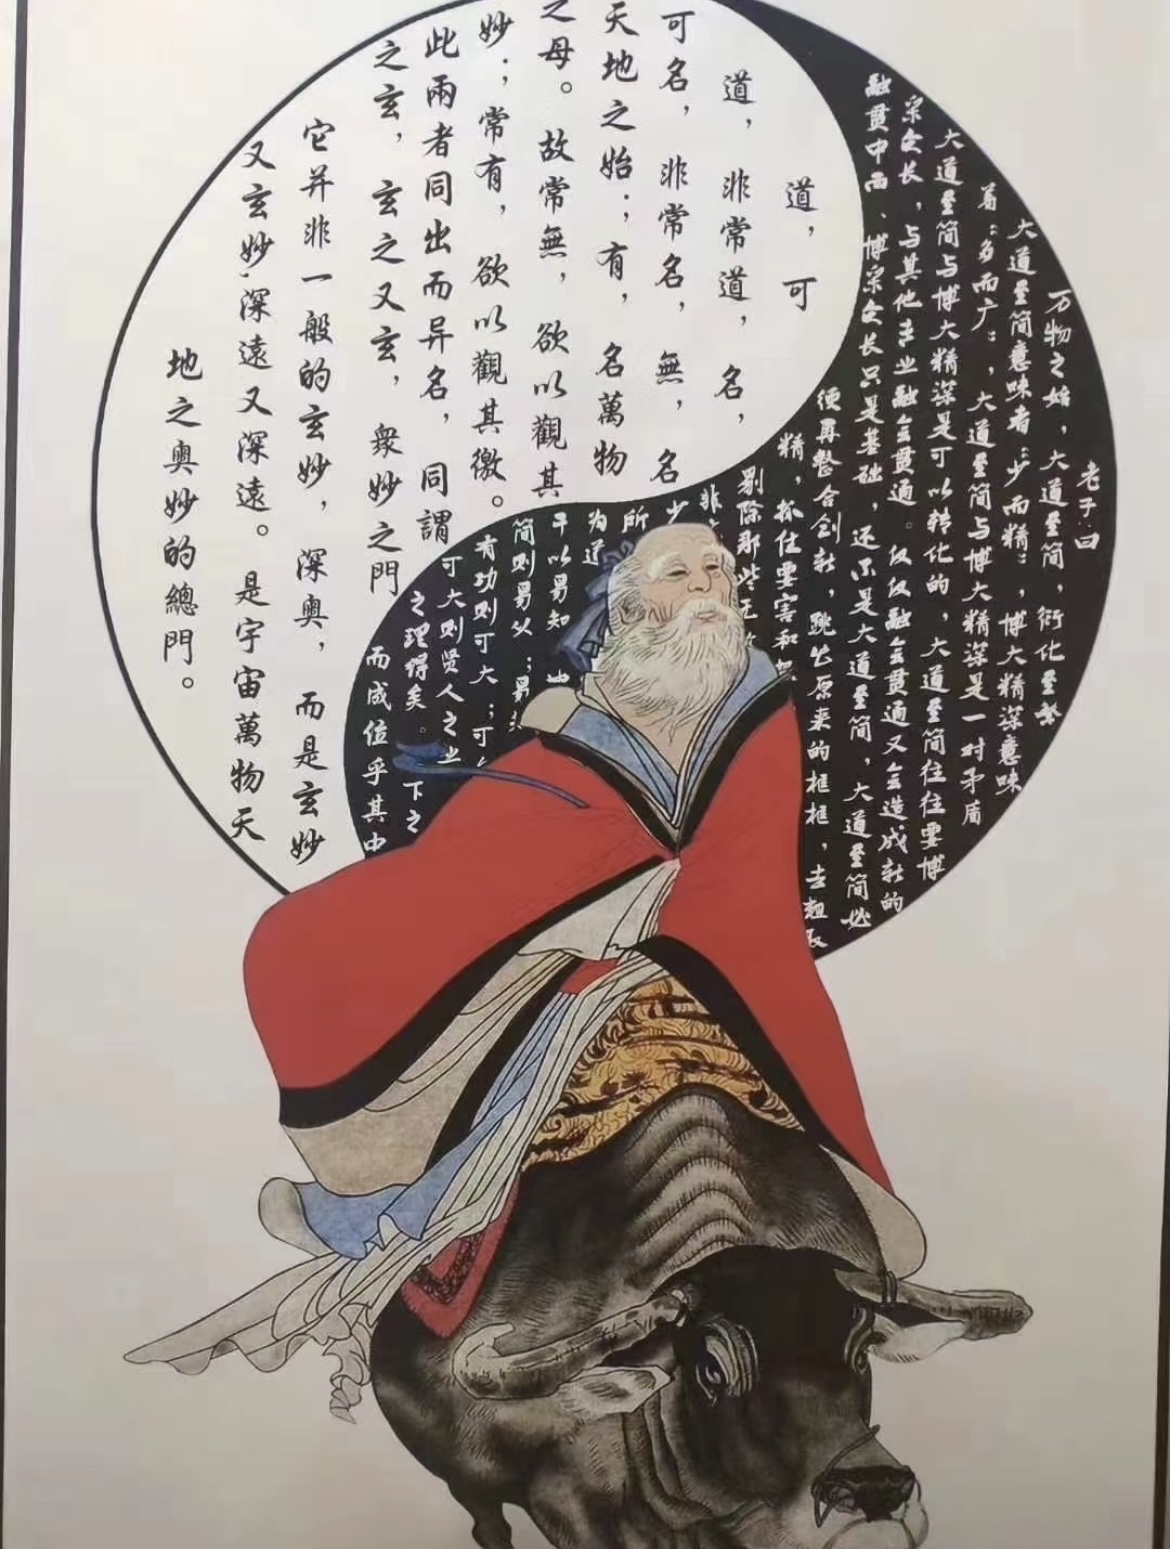 老子曰
万物之始，大道至简，衍化至繁
大道至简意味着：少而精：，博大精深意味
着：多而广：，大道至简与博大精深是一对矛盾
大道至简与博大精深是可以转化的，大道至简往往要博
采众长，与其他专业融会贯通。仅仅融会贯通又会造成新的
融贯中西、博采众长只是基础，还不是大道至简，大道至简必
便再整合创新，跳出原来的框框，去粗取
精，抓住要害和
剔除那些
非
少
所
为道
干以易知
简则易从；易
有功则可大；可
可大则贤人之业
之理得矣。下之
而成位乎其中
道，可
道，非常道，名，
可名，非常名，無，名
天地之始；有，名萬物
之母。故常無，欲以觀其
妙；常有，欲以觀其徼。
此兩者同出而异名，同謂
之玄，玄之又玄，衆妙之門
它并非一般的玄妙，深奥，而是玄妙
又玄妙、深遠又深遠。是宇宙萬物天
地之奥妙的總門。